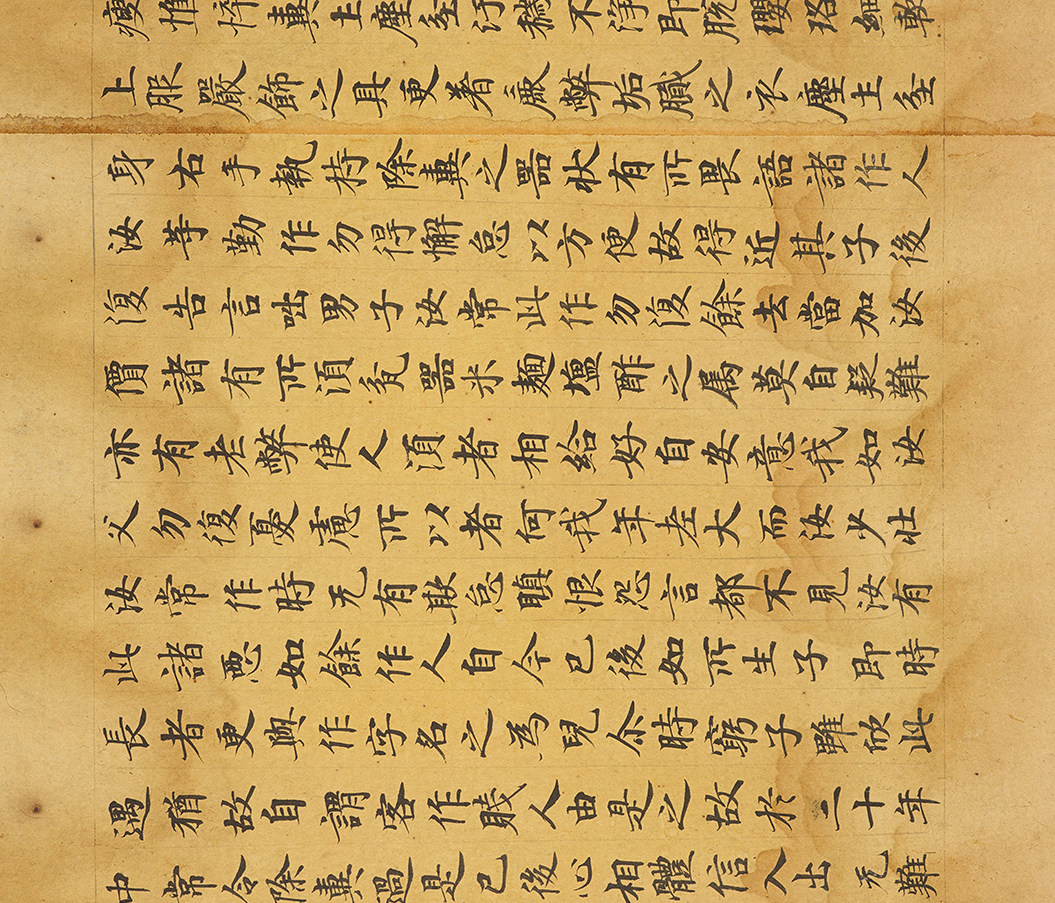 瘦憔悴糞土塵坌汙穢不淨即脫瓔珞細軟
上服嚴飾之具更著麁弊垢膩之衣塵土坌
身右手執持除糞之器狀有所畏語諸作人
汝等勤作勿得懈怠以方便故得近其子後
復告言咄男子汝常此作勿復餘去當加汝
價諸有所須瓫器米麵塩酢之属莫自疑難
亦有老弊使人須者相給好自安意我如汝
父勿復憂慮所以者何我年老大而汝少壯
汝常作時无有欺怠瞋恨怨言都不見汝有
此諸惡如餘作人自今已後如所生子即時
長者更與作字名之為兒尒時窮子雖欣此
遇猶故自謂客作賤人由是之故於二十年
中常令除糞過是已後心相體信入出无難